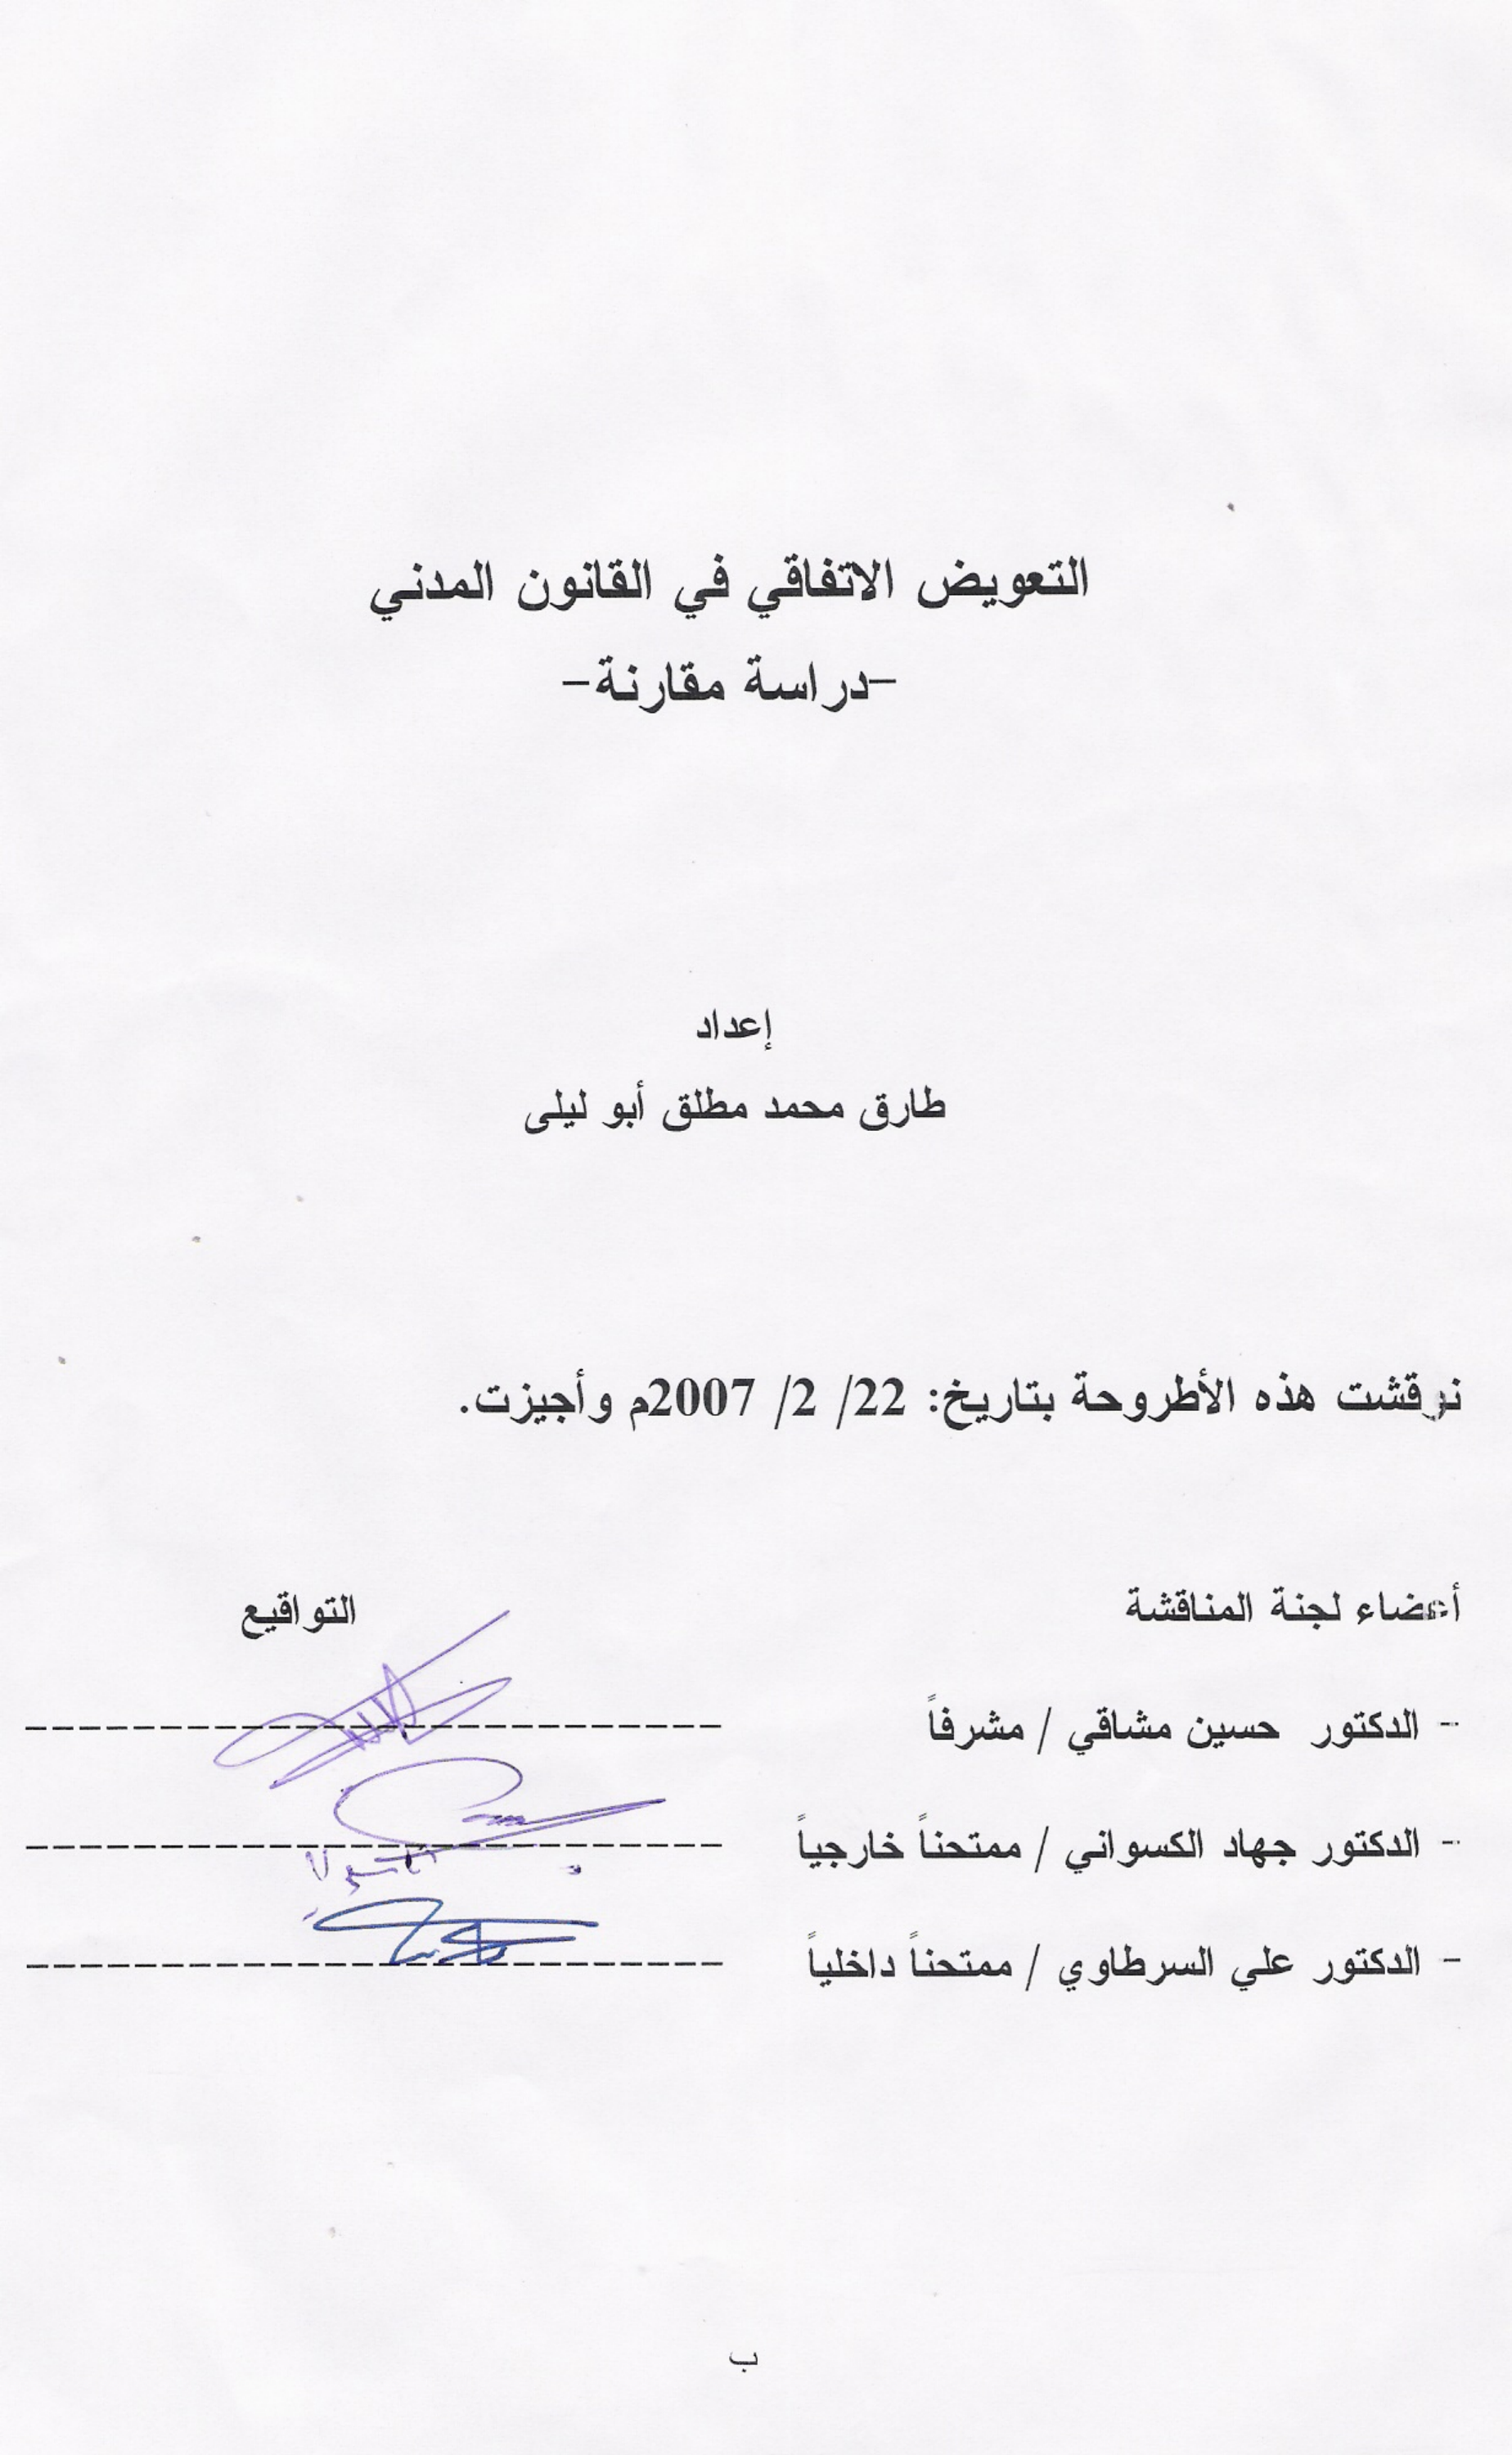 التعويض الاتفاقي في القانون المدني
-دراسة مقارنة-
إعداد
طارق محمد مطلق أبو ليلى
نوقشت هذه الأطروحة بتاريخ: 22/ 2/ 2007م وأجيزت.
أعضاء لجنة المناقشة التواقيع
- الدكتور حسين مشاقي / مشرفاً
- الدكتور جهاد الكسواني / ممتحناً خارجياً
- الدكتور علي السرطاوي / ممتحناً داخلياً
ب